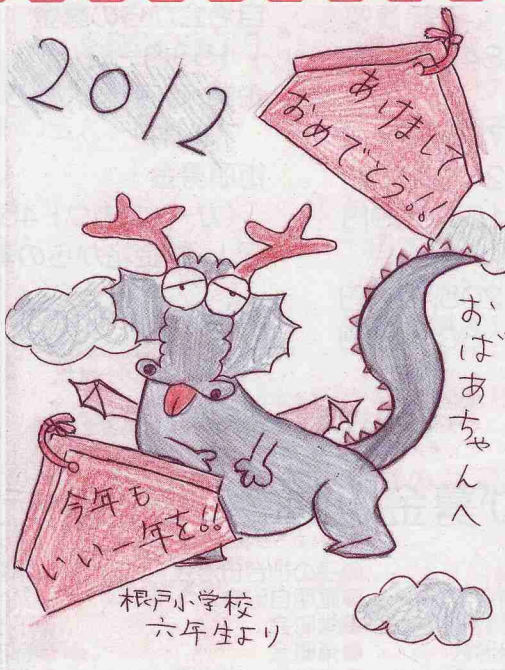 2012
あけまして
おめでとう!!
おばあちゃんへ
今年も
いい一年を!!
根戸小学校
六年生より